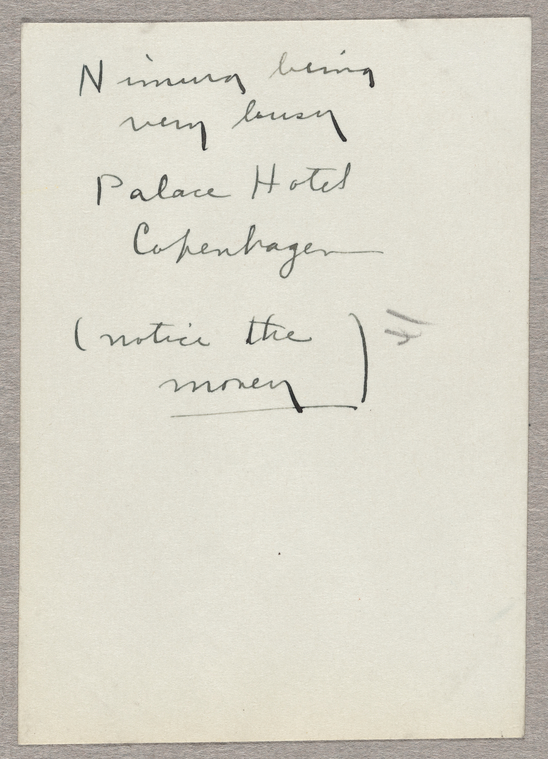 Nimura being
very busy
Palace Hotel
Copenhagen
(notice the
money)